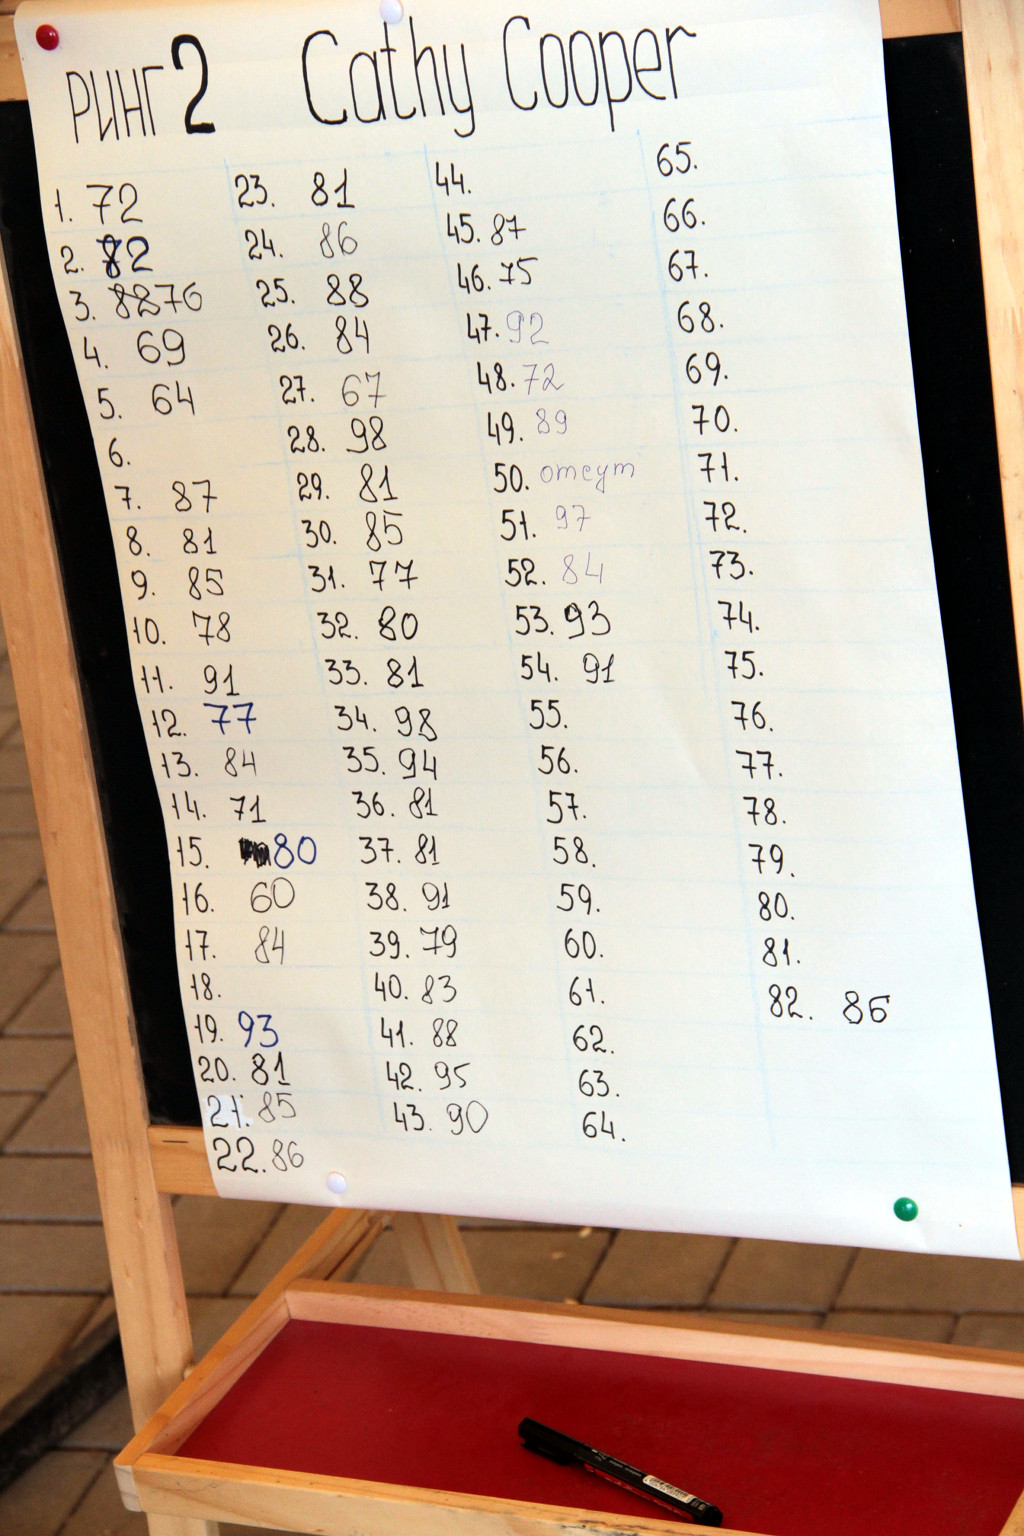 РИНГ 2 Cathy Cooper
1. 72
2. 82
3. 8876
4. 69
5. 64
6.
7. 87
8. 81
9. 85
10. 78
11. 91
12. 77
13. 84
14. 71
15. 80
16. 60
17. 84
18.
19. 93
20. 81
21. 85
22. 86
23. 81
24. 86
25. 88
26. 84
27. 67
28. 98
29. 81
30. 85
31. 77
32. 80
33. 81
34. 98
35. 94
36. 81
37. 81
38. 91
39. 79
40. 83
41. 88
42. 95
43. 90
44.
45. 87
46. 75
47. 92
48. 72
49. 89
50. отсут
51. 97
52. 84
53. 93
54. 91
55.
56.
57.
58.
59.
60.
61.
62.
63.
64.
65.
66.
67.
68.
69.
70.
71.
72.
73.
74.
75.
76.
77.
78.
79.
80.
81.
82. 86